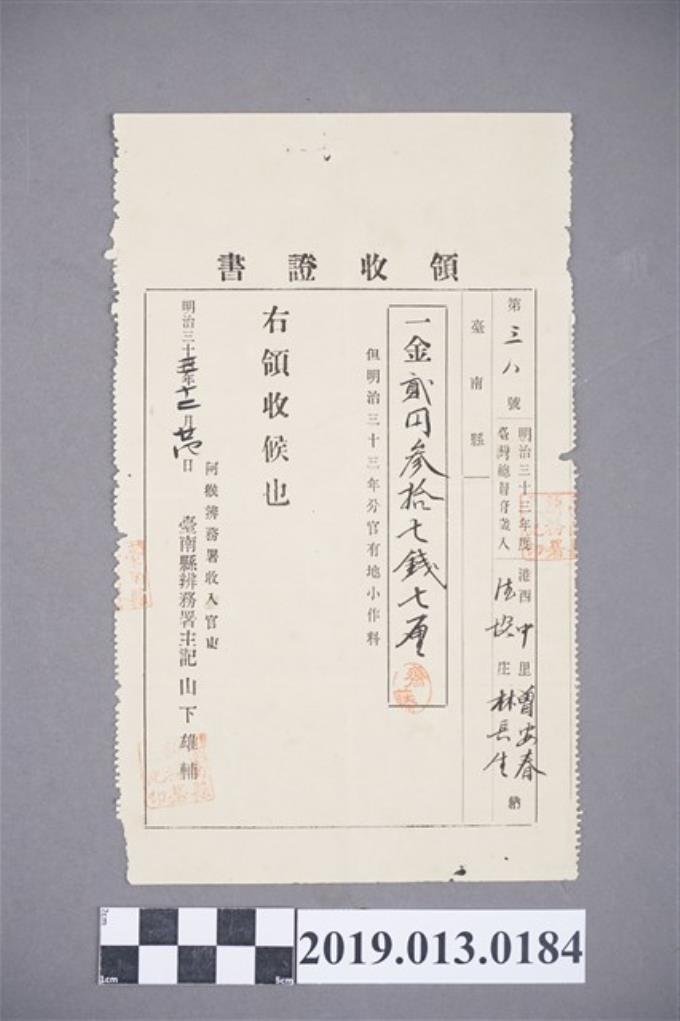 領收證書
第三八號
明治三十三年度
臺灣總督府歲入
港西中里
庄
曾安春
林長生
納
臺南縣
一金貳円參拾七錢七厘
但明治三十三年分官有地小作料
右領收候也
明治三十三年十二月廿四日
阿猴辨務署收入官吏
臺南縣辨務署主記山下雄輔
2019.013.0184
1cm
5cm
2cm